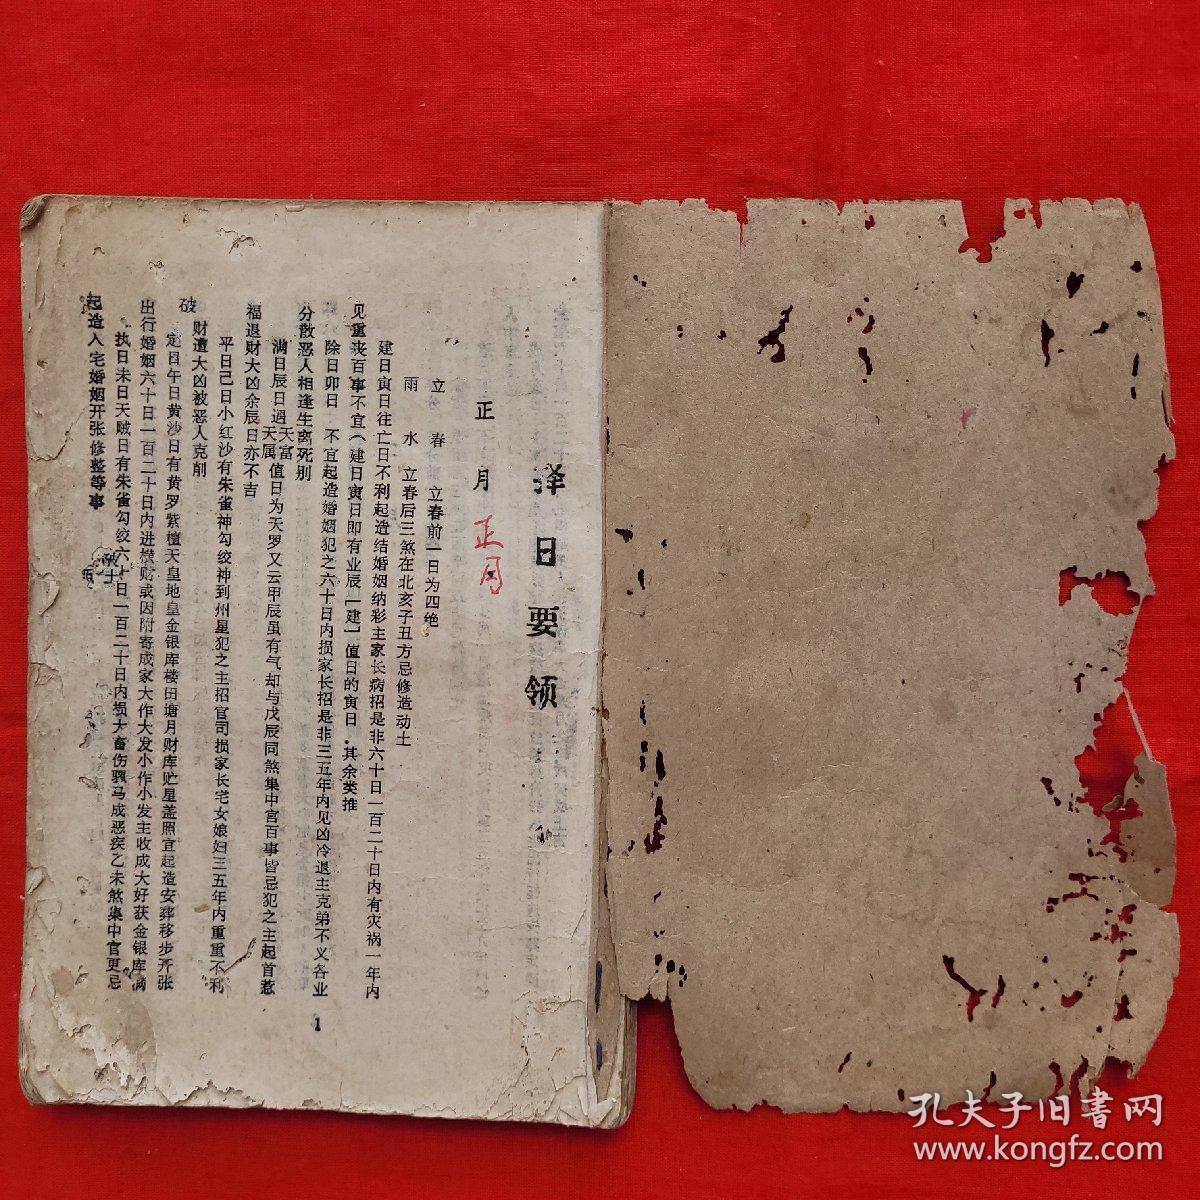 择日要领
正月 正月
立春 立春前一日为四绝
雨水 立春后三煞在北亥子丑方忌修造动土
建日寅日往亡日不利起造结婚姻纳彩主家长病招是非六十日一百二十日内有灾祸一年内
见重丧百事不宜(建日寅日即有业辰「建」值日的寅日.其余类推
除日卯日 不宜起造婚姻犯之六十日内损家长招是非三五年内见凶冷退主克弟不义各业
分散恶人相逢生离死别
满日辰日遇天富天属值日为天罗又云甲辰虽有气却与戊辰同煞集中宫百事皆忌犯之主起首惹
福退财大凶余辰日亦不吉
平日己日小红沙有朱雀神勾绞神到州星犯之主招官司损家长宅女娘妇三五年内重重不利
破财遭大凶被恶人克削
定日午日黄沙日有黄罗紫檀天皇地皇金银库楼田塘月财库贮星盖照宜起造安葬移步开张
出行婚姻六十日一百二十日内进横财或因附寄成家大作大发小作小发主收成大好获金银库满
执日未日天贼日有朱雀勾绞六十日一百二十日内损大畜伤骡马成恶疾乙未煞集中宫更忌
起造入宅婚姻开张修整等事
1
孔夫子旧書网
www.kongfz.com